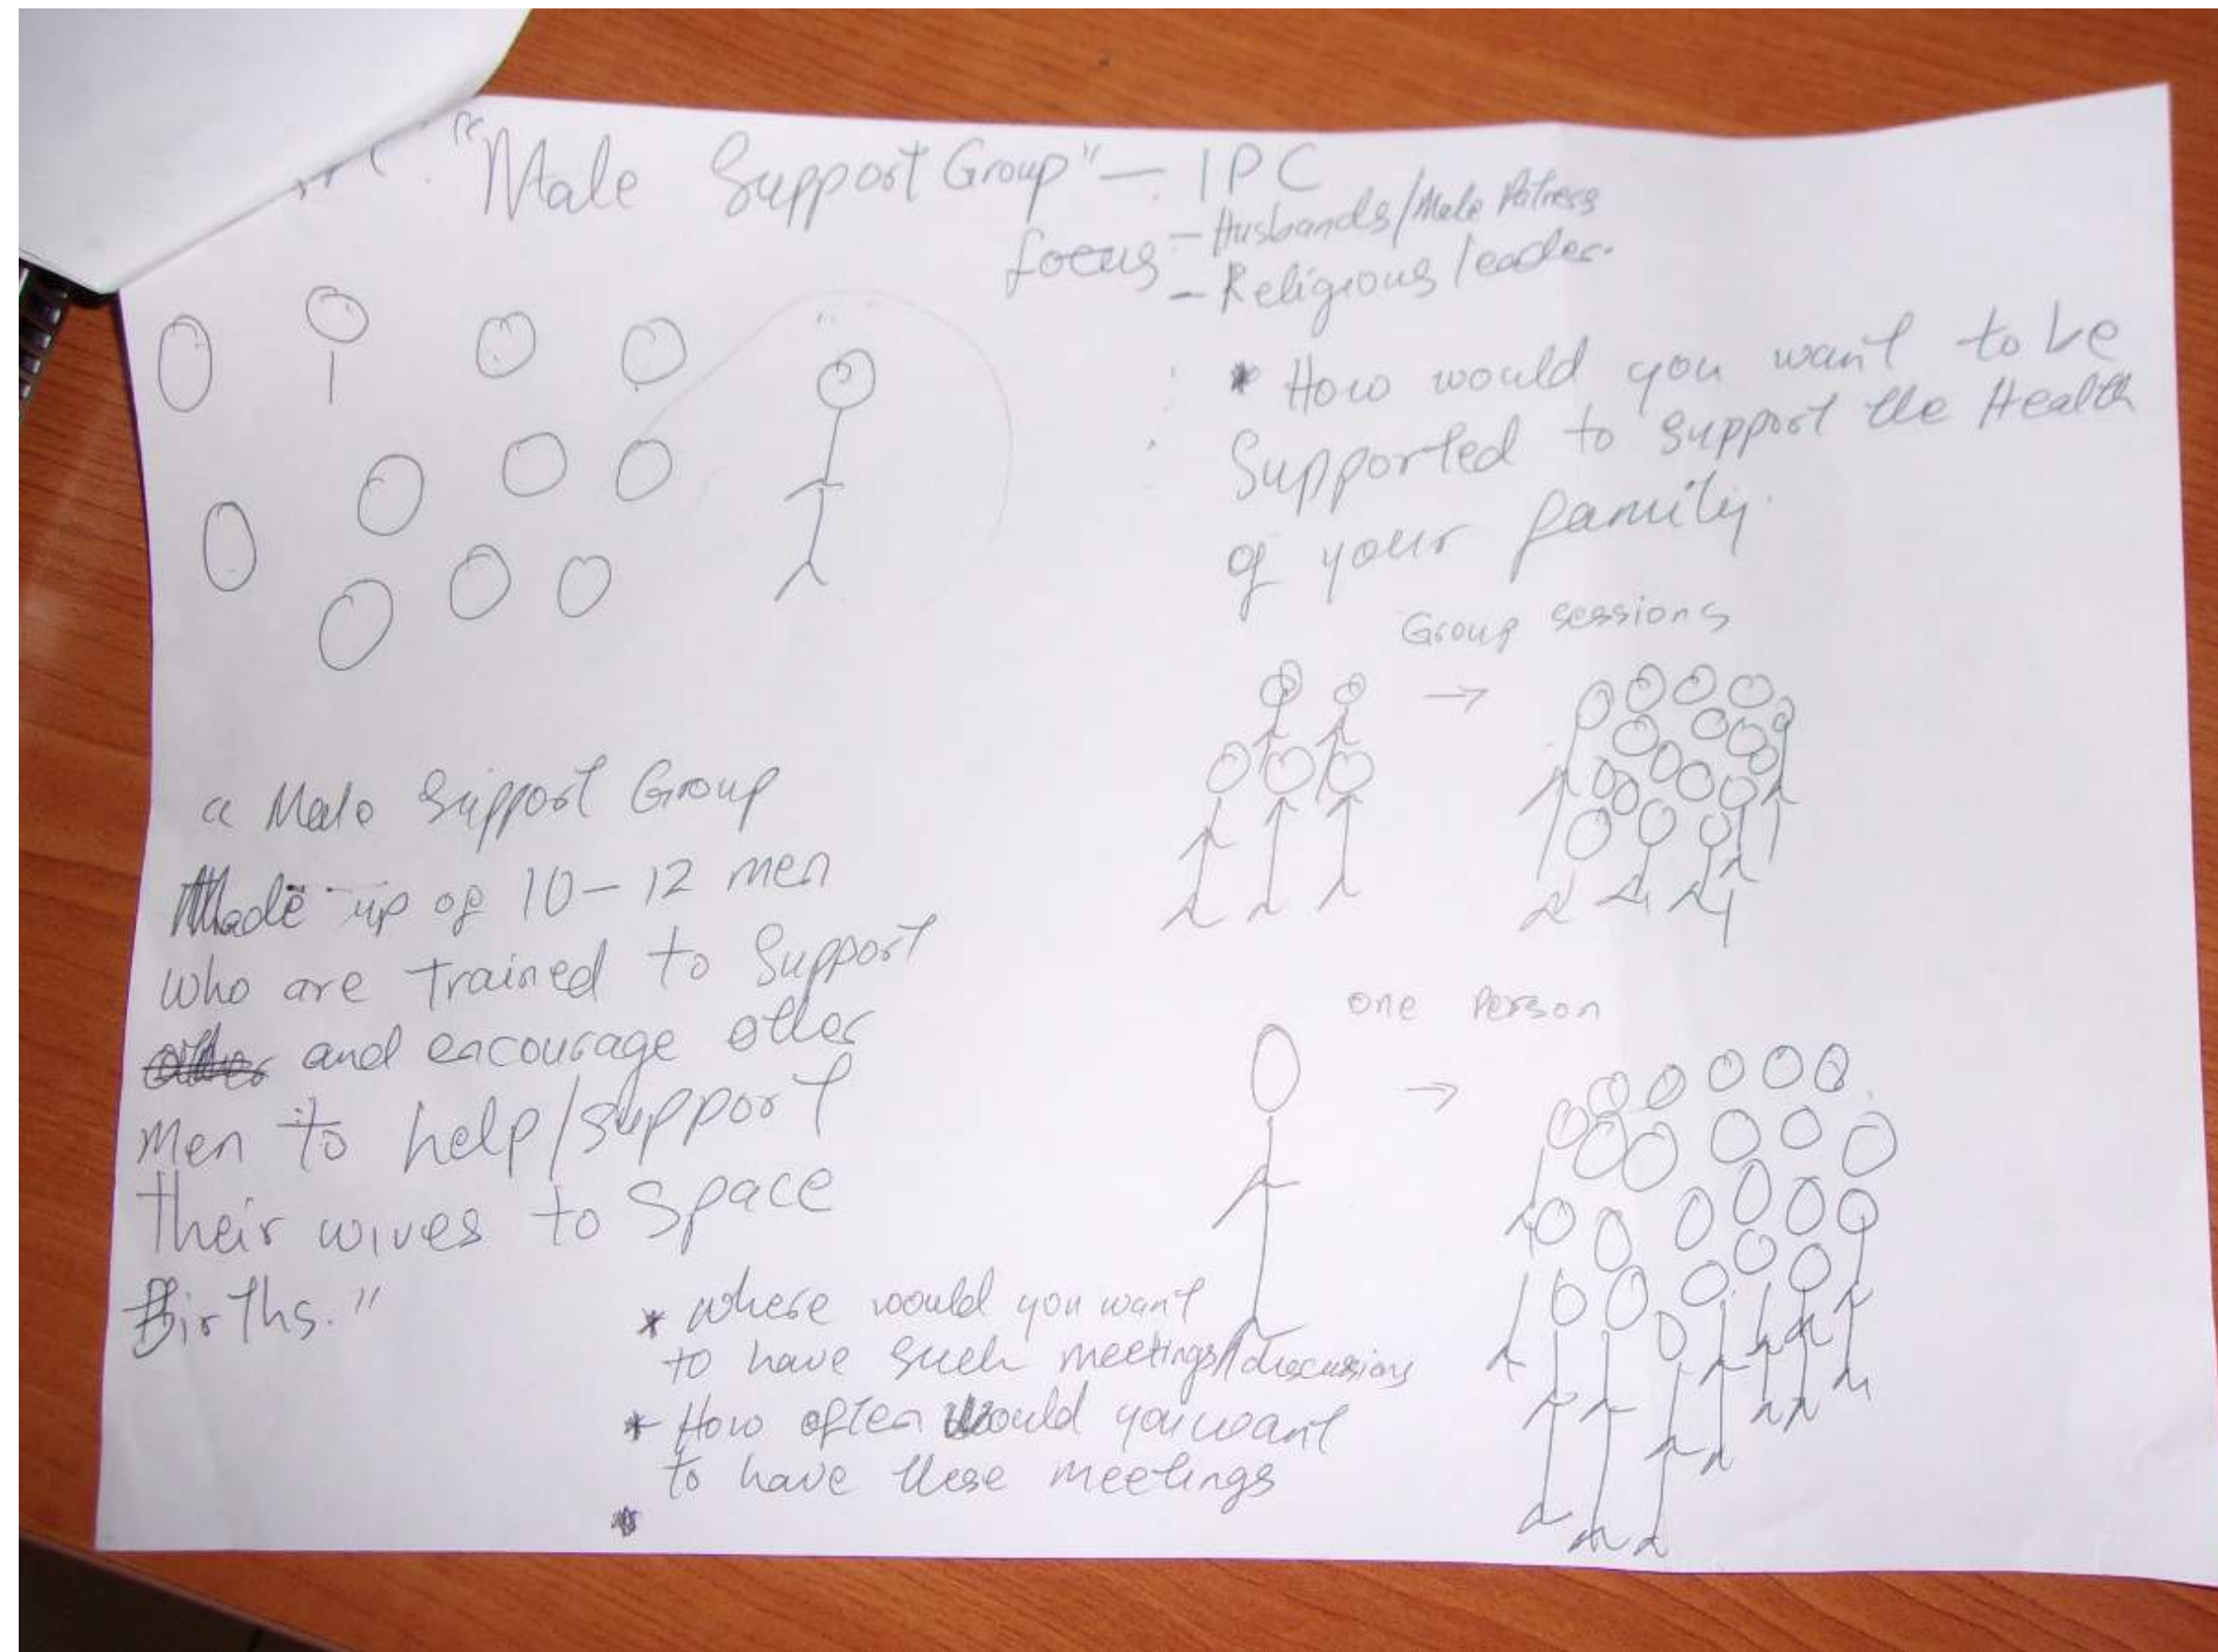 "Male Support Group" — IPC
focus – Husbands/Male Patners
– Religious leader.
* How would you want to be
Supported to support the Health
of your family.
Group sessions
"Male Support Group
Made up of 10–12 men
who are trained to Support
and encourage other
men to help/support
their wives to Space
Births."
one Person
* where would you want
to have such meetings/discussions
* How often would you want
to have these meetings
*